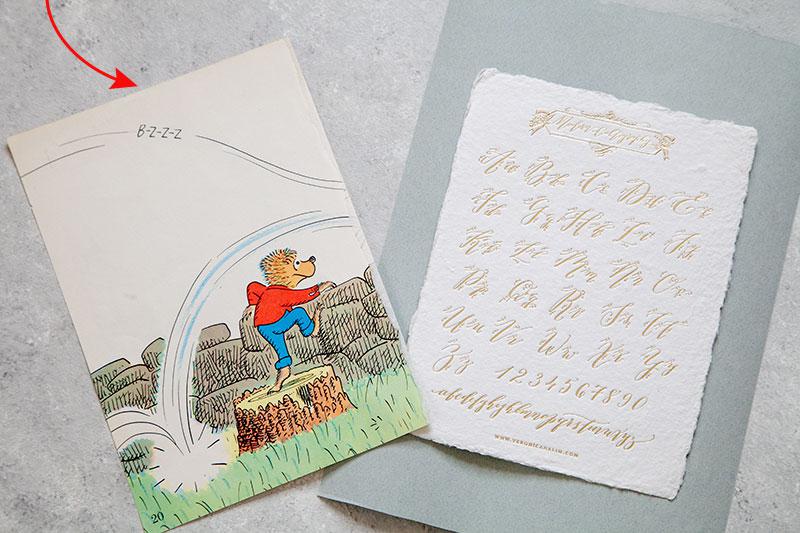 B-Z-Z-Z
20
Modern Calligraphy
Aa Bb Cc Dd Ee
Ff Gg Hh Ii Jj
Kk Ll Mm Nn Oo
Pp Qq Rr Ss Tt
Uu Vv Ww Xx Yy
Zz 1234567890
abcdefghijklmnopqrstuvwxyz
WWW.VERONICAHALIM.COM